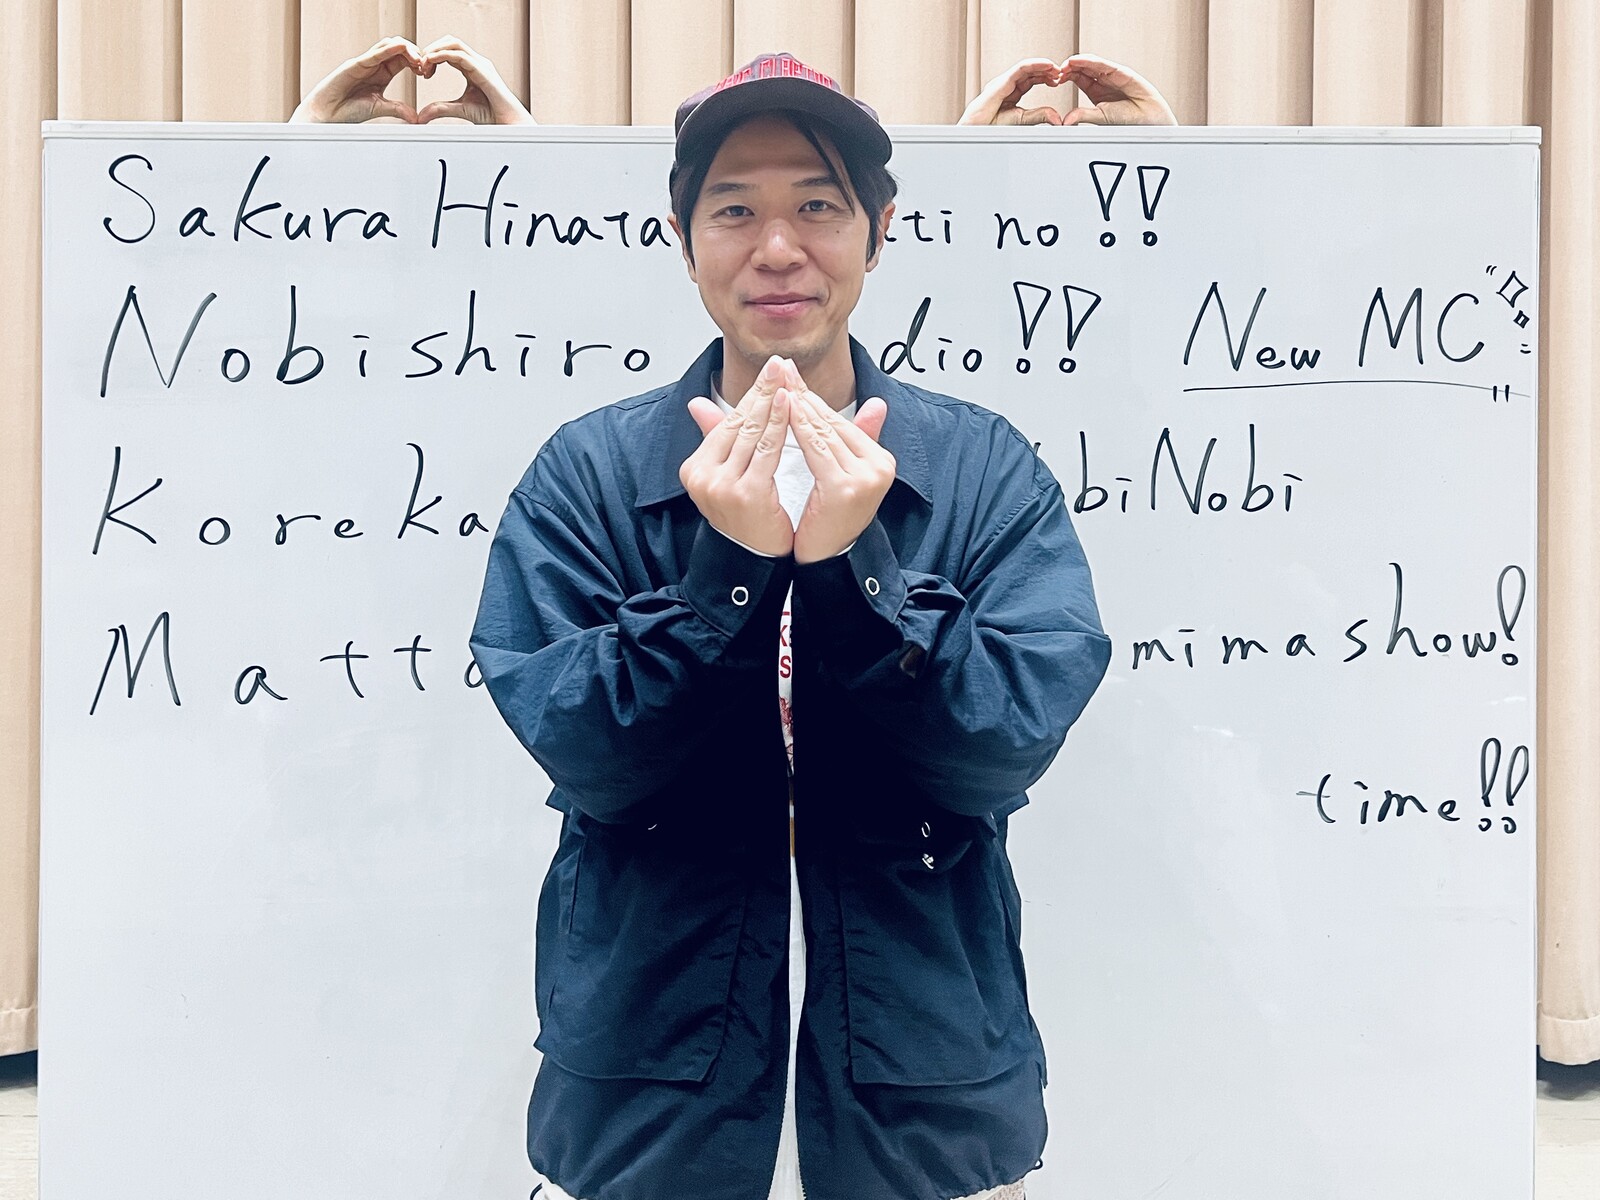 Sakura Hinata ti no!!
Nobishiro dio!! New MC
Koreka biNobi
Matt mimashow!
time!!